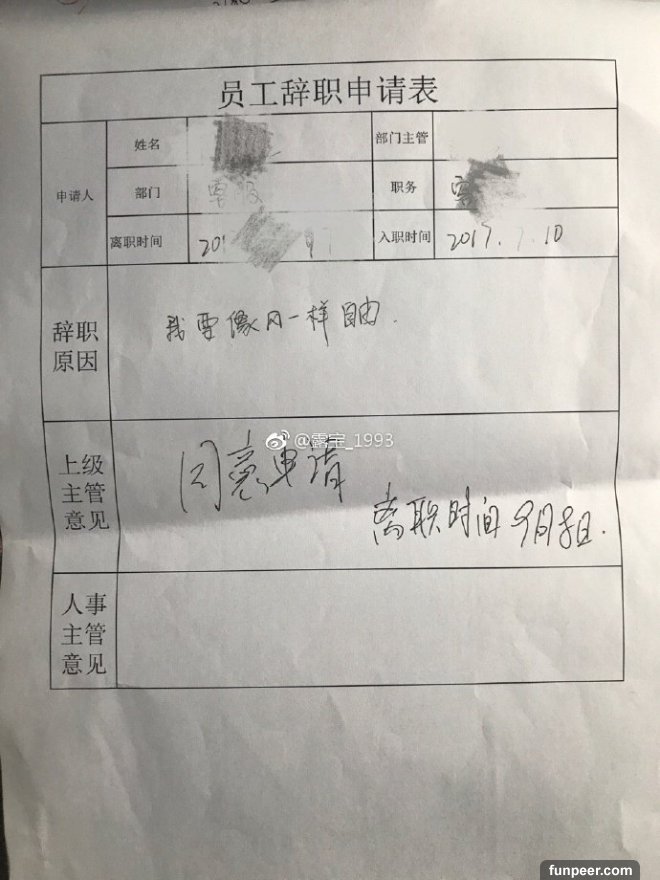 员工辞职申请表
申请人
姓名
部门主管
部门
职务
离职时间 201
入职时间 2017.7.10
辞职原因
我要像风一样自由.
@露宝_1993
上级主管意见
同意申请
离职时间 9月8日.
人事主管意见
funpeer.com